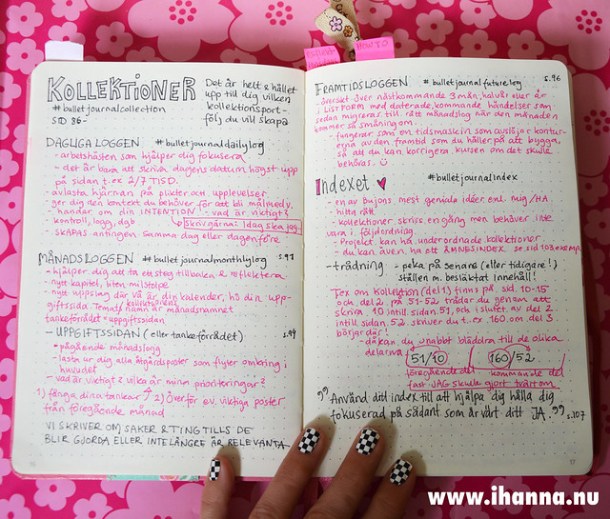 KOLLEKTIONER
#bulletjournalcollection
SID 36-
Det är helt & hållet
upp till dig vilken
kollektionsport-
följ du vill skapa
DAGLIGA LOGGEN #bulletjournaldailylog
- arbetshästen som hjälper dig fokusera
- det är bara att skriva dagens datum högst upp
på sidan t.ex 2/7 TISD.
avlasta hjärnan på plikter och upplevelser
ger dig den kontext du behöver för att bli målmedv.
handlar om din INTENTION - vad är viktigt?
kontroll, logg, dgb
Skrivgärna: Idag ska jag
- SKAPAS antingen samma dag eller dagen före.
MÅNADSLOGGEN #bulletjournalmonthlylog s.91
- hjälper dig att ta ett steg tillbaka & reflektera
- nytt kapitel, liten milstolpe
- nytt uppslag där vä är din kalender, hö din upp-
giftssida. Temat/ namn är månadsnamnet
tankeförrådet = uppgiftssidan
- UPPGIFTSSIDAN (eller tankeförrådet)
- pågående månadslog
- lasta ur dig alla åtgärdsposter som flyter omkring i
huvudet
- vad är viktigt? vilka är mina prioriteringar?
1) fånga dina tankar 2) överför ev. viktiga poster
från föregående månad
VI SKRIVER OM SAKER & TING TILLS DE
BLIR GJORDA ELLER INTE LÄNGRE ÄR RELEVANTA
FRAMTIDSLOGGEN #bulletjournalfuturelog s.96
- översikt över nästkommande 3 mån, halvår eller år
I LISTFORM med daterade, kommande händelser som
sedan migreras till rätt månadslog när den månaden
kommer så småningom.
- fungerar som en tidsmaskin som avslöjar kontur-
erna av den framtid som du håller på att bygga,
så att du kan korrigera kursen om det skulle
behövas. :)
Indexet ♥ #bulletjournalindex
- en av bujons mest geniala idéer enl. mig / HA
- hitta rätt
- kollektioner skrivs en gång men behöver inte
vara i följdordning
- Projekt kan ha underordnade kollektioner
- du kan även ha ett ÄMNESINDEX
- trådning - peka på senare (eller tidigare!)
ställen m. besläktat innehåll!
Tex om Kollektion (del 1) finns på sid. 10-15
och del 2 på 51-52 trådar du genom att
skriva 10 intill sidan 51, och i slutet av del 2
intill sidan 52 skriver du t.ex. 160 om del 3
börjar där!
- då kan du snabbt bläddra till de olika
delarna
51/10 160/52
föregående del kommande del
fast JAG skulle gjort tvärtom
"Använd ditt index till att hjälpa dig hålla dig
fokuserad på sådant som är värt ditt JA." s.107
www.ihanna.nu